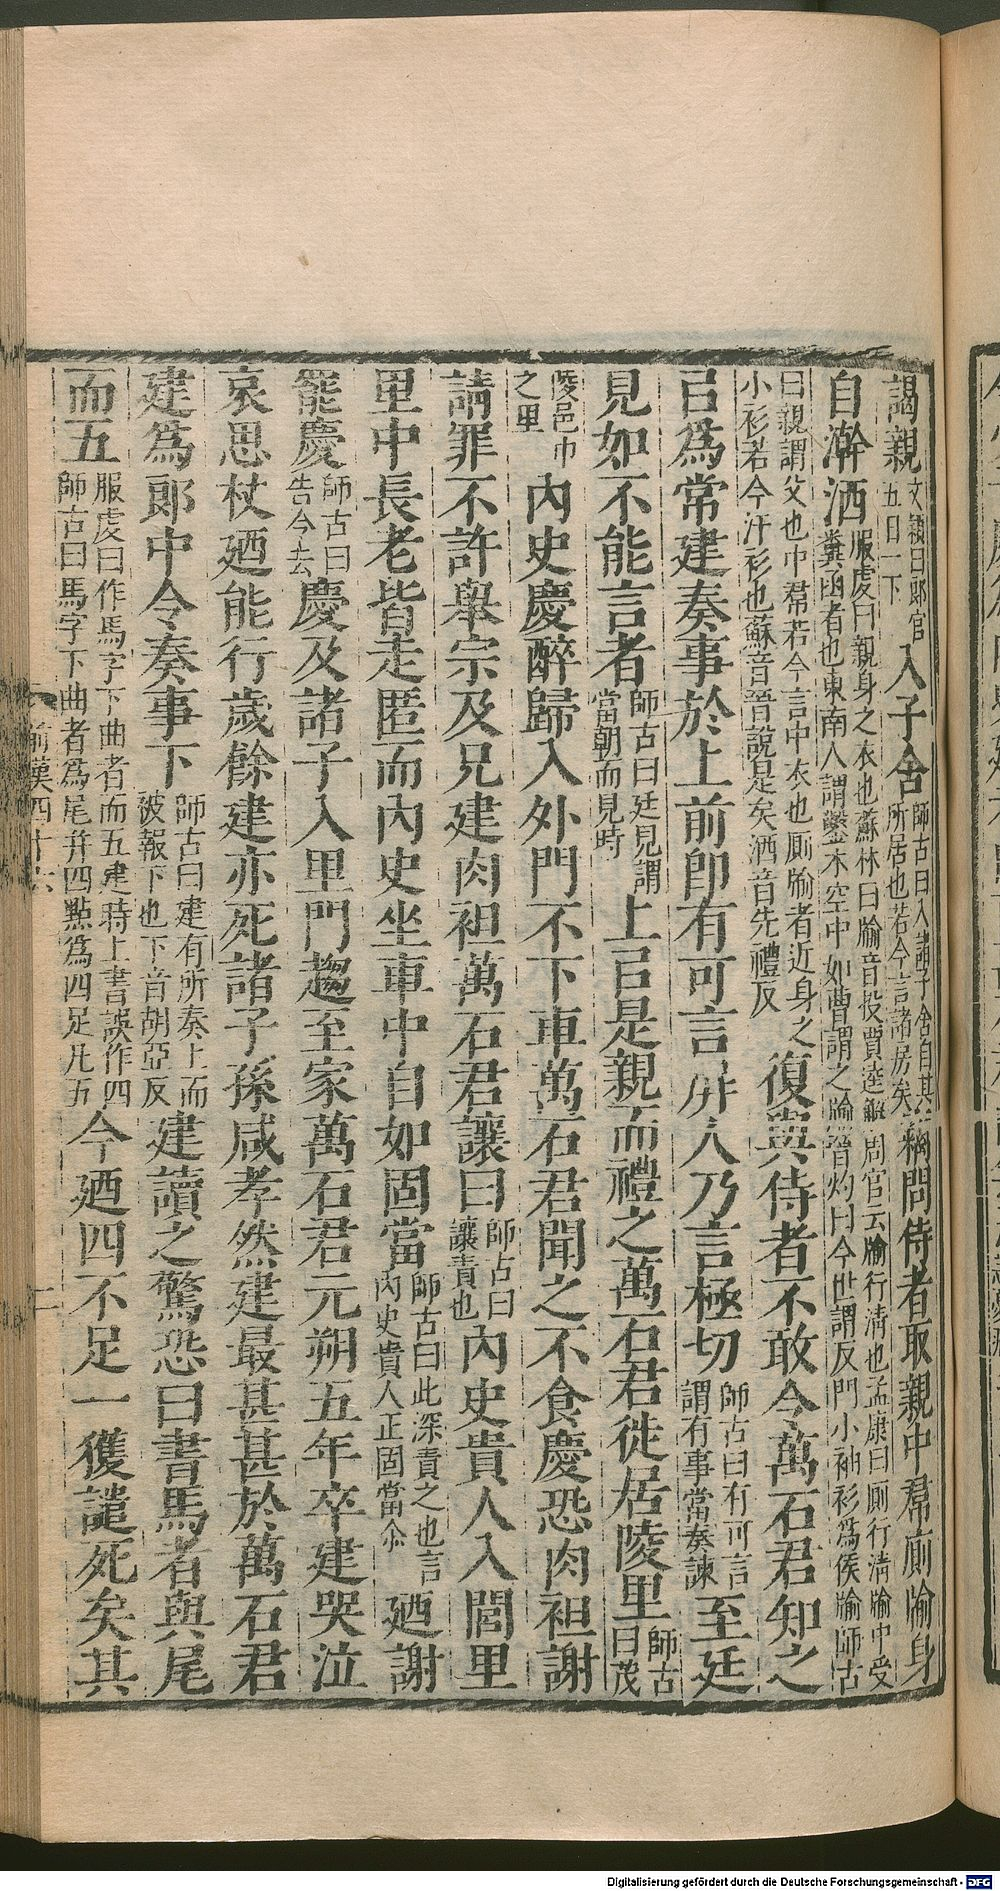 謁親文穎曰郎官五日一下入子舍師古曰入諸子舍自其所居也若今言諸房矣竊問侍者取親中帬廁牏身
自澣洒服虔曰親身之衣也蘇林曰牏音投賈逵解周官云牏行清也孟康曰廁行清牏中受糞函者也東南人謂鑿木空中如曹謂之牏晉灼曰今世謂反門小袖衫爲侯牏師古
曰親謂父也中帬若今言中衣也廁牏者近身之小衫若今汗衫也蘇音晉說是矣洒音先禮反復與侍者不敢令萬石君知之
㠯爲常建奏事於上前卽有可言屏人乃言極切師古曰有可言謂有事當奏諫至廷
見如不能言者師古曰廷見謂當朝而見時上㠯是親而禮之萬石君徙居陵里師古曰茂
陵邑中之里內史慶醉歸入外門不下車萬石君聞之不食慶恐肉袒謝
請罪不許舉宗及兄建肉袒萬石君讓曰師古曰讓責也內史貴人入閭里
里中長老皆走匿而內史坐車中自如固當師古曰此深責之也言內史貴人正固當尒廼謝
罷慶師古曰告令去慶及諸子入里門趨至家萬石君元朔五年卒建哭泣
哀思杖廼能行歲餘建亦死諸子孫咸孝然建最甚甚於萬石君
建爲郎中令奏事下師古曰建有所奏上而被報下也下音胡亞反建讀之驚恐曰書馬者與尾
而五服虔曰作馬字下曲者而五建時上書誤作四師古曰馬字下曲者爲尾并四點爲四足凡五今廼四不足一獲譴死矣其
前漢四十六 二
Digitalisierung gefördert durch die Deutsche Forschungsgemeinschaft - DFG